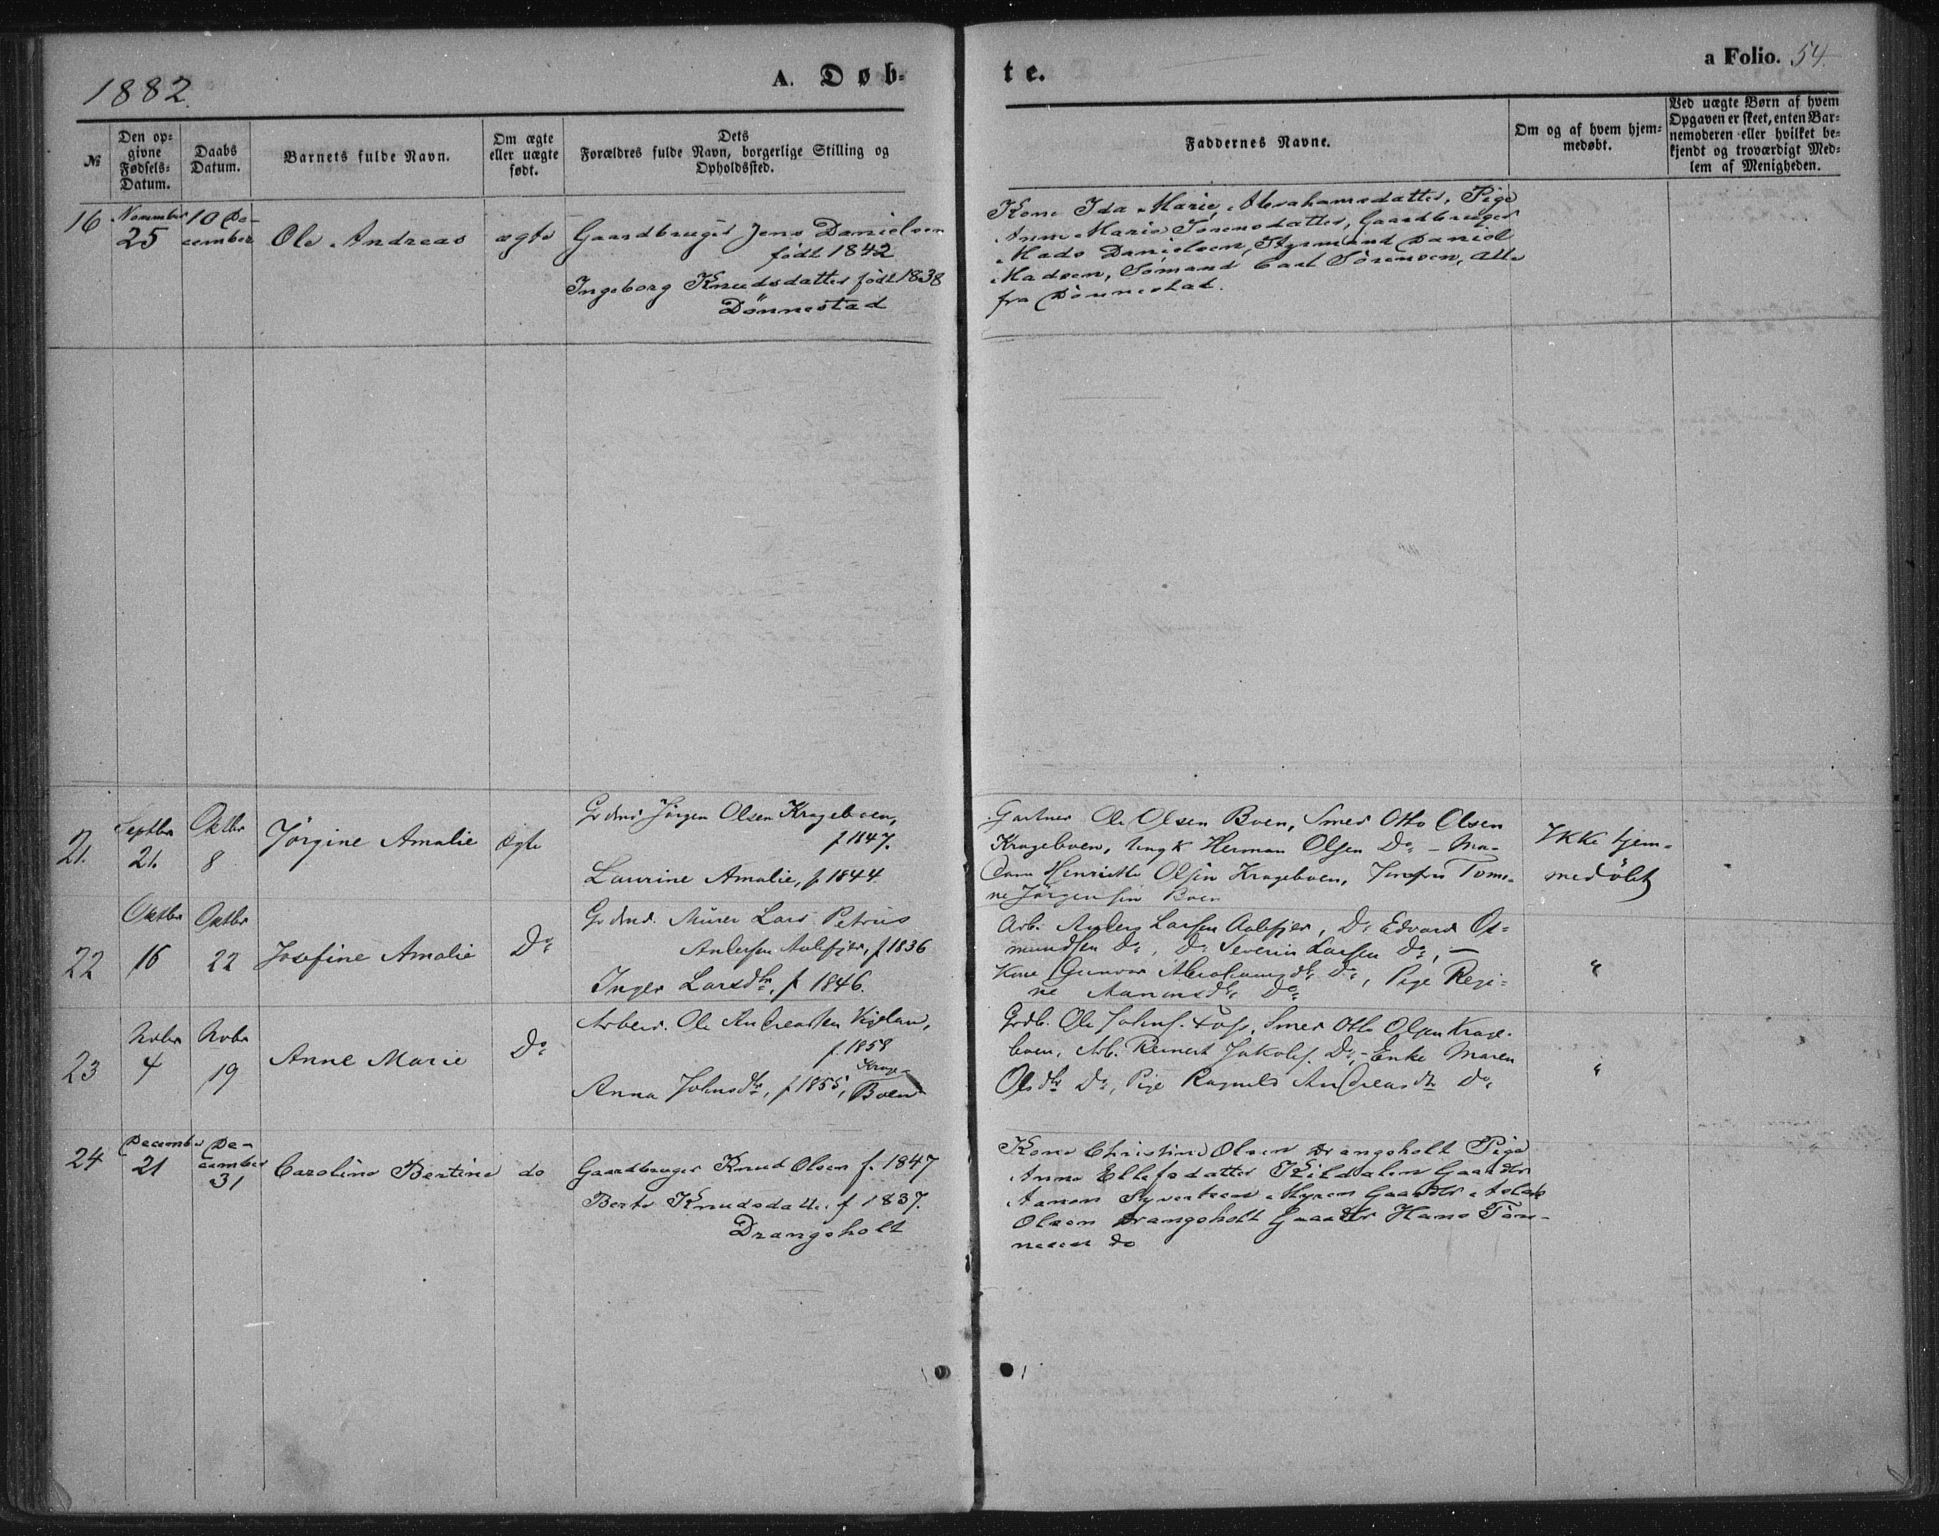 1882.
A. Døb-
te.
a Folio. 54.
№
Den op-
givne
Fødsels-
Datum.
Daabs
Datum.
Barnets fulde Navn.
Om ægte
eller uægte
født.
Dets
Forældres fulde Navn, borgerlige Stilling og
Opholdssted.
Faddernes Navne.
Om og af hvem hjem-
medøbt.
Ved uægte Børn af hvem
Opgaven er skeet, enten Bar-
nemoderen eller hvilket be-
kjendt og troværdigt Med-
lem af Menigheden.
16
November
25
10 De-
cember
Ole Andreas
ægte
Gaardbruger Jens Danielsen
født 1842
Ingeborg Knudsdatter født 1838
Dönnestad
Kone Ida Marie Abrahamsdatter, Pige
Anne Marie Sörensdatter, Gaardbruger
Mads Danielsen, Styrmand Daniel
Madsen, Sömand Carl Sörensen, Alle
fra Dönnestad.
21.
Septbr
21.
Oktbr
8
Jørgine Amalie
Ægte
Jørgen Olsen Krageboen,
f 1847.
Laurine Amalie, f 1844.
Gartner Ole Olsen Boen, Smed Otto Olsen
Krageboen, Ungk Herman Olsen Do - Ma-
dam Henriette Olsen Krageboen, Jomfru Tomi-
ne Jörgensen Boen
Ikke hjem-
medøbt
22
Oktbr
16
Oktbr
22
Josefine Amalie
Do
Murer Lars Petrus
Andersen Aalefjær, f 1836
Inger Larsdtr, f 1846.
Arb. Anders Larsen Aalefjær, Do Edvard Os-
mundsen Do, Do Severin Larsen Do, -
Kone Gunvor Abrahamsdtr Do, Pige Regi-
ne Aanonsdtr Do
"
23
Novbr
4
Novbr
19
Anne Marie
Do
Arbeid. Ole Andreassen Vigeland,
f. 1858
Anna Johnsdtr, f 1855, Krage-
Boen
Grdb. Ole Johns. Foss, Smed Otto Olsen Krage-
boen, Arb. Reinert Jakobs. Do, - Enke Maren
Olsdtr Do, Pige Ragnild Andreasdtr Do
"
24
December
21
De-
cember
31
Caroline Bertine
do
Gaardbruger Knud Olsen f. 1847
Berte Knudsdatter f 1837.
Drangsholt
Kone Christine Olsen Drangsholt Pige
Anne Ellefsdatter Kildalen Gaardbr
Aanon Syvertsen Myren Gaardbr Aslak
Olsen Drangsholt Gaardbr Hans Tön-
nesen do